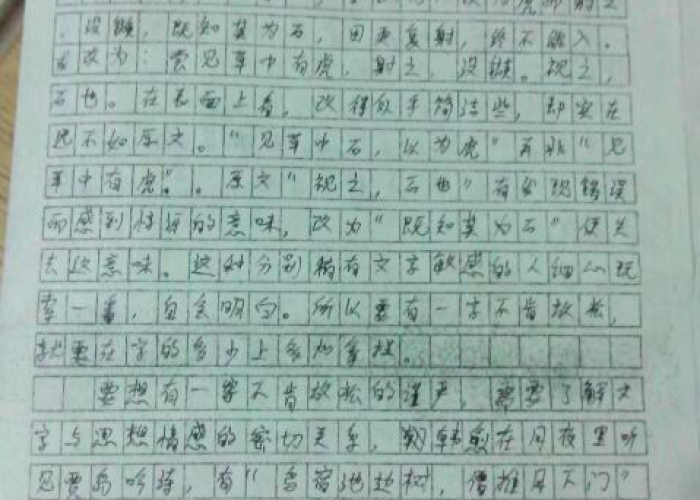 没镞,既知其为石,因更复射,终不能入。
改为:尝见草中有虎,射之,没镞。视之,
石也。在表面上看,改得似乎简洁些,却实在
远不如原文。“见草中石,以为虎”再到“见
草中有虎”。原文“视之,石也”有发现错误
而感到惊讶的意味,改为“既知其为石”便失
去这意味。这种分别稍有文字敏感的人细心玩
索一番,自会明白。所以要有一字不肯放松,
就要在字的多少上多加
要想有一字不肯放松的谨严,需要了解文
字与思想情感的密切关系,韩愈在月夜里听
见贾岛吟诗,有“鸟宿池边树,僧推月下门”